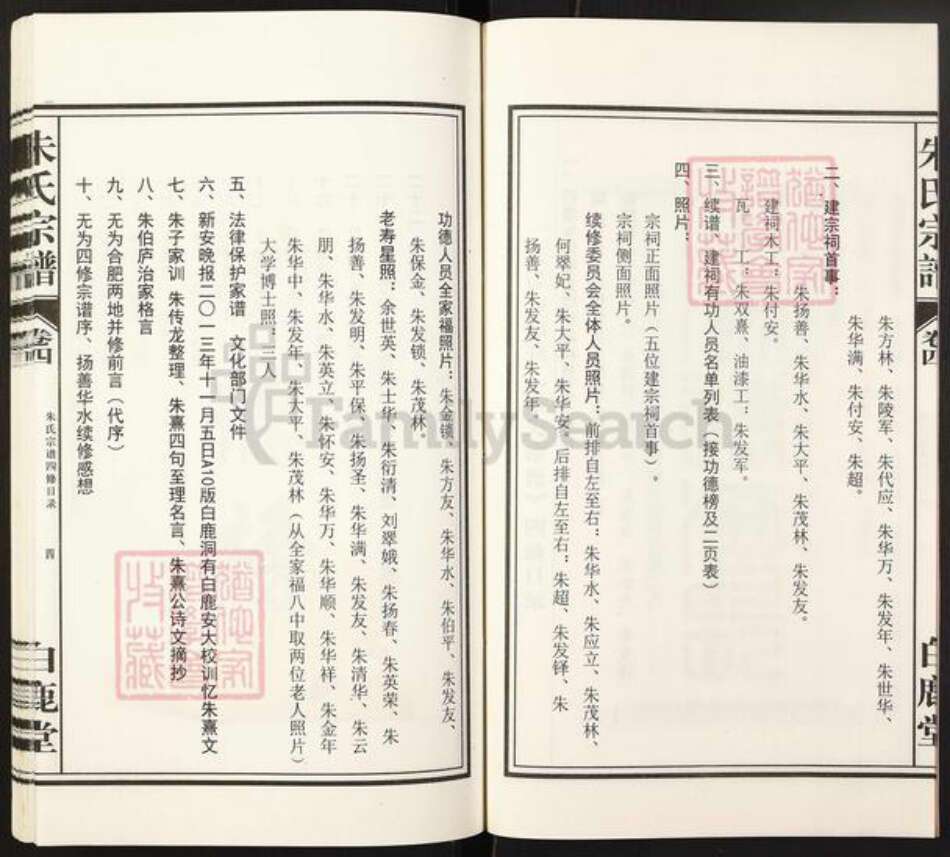 朱氏宗谱
卷四
白鹿堂
朱方林、朱陵军、朱代应、朱华万、朱发年、朱世华、
朱华满、朱付安、朱超。
二、建宗祠首事：
朱扬善、朱华水、朱大平、朱茂林、朱发友。
建祠木工：朱付安。
瓦　工：朱双熹、油漆工：朱发军。
三、续谱、建祠有功人员名单列表（接功德榜及二页表）
四、照片：
宗祠正面照片（五位建宗祠首事）。
宗祠侧面照片。
续修委员会全体人员照片：前排自左至右：朱华水、朱应立、朱茂林、
何翠妃、朱大平、朱华安、后排自左至右：朱超、朱发铎、朱
扬善、朱发友、朱发年
功德人员全家福照片：朱金锁、朱方友、朱华水、朱伯平、朱发友、
朱保金、朱发锁、朱茂林
老寿星照：余世英、朱士华、朱衍清、刘翠娥、朱扬春、朱英荣、朱
扬善、朱发明、朱平保、朱扬圣、朱华满、朱发友、朱清华、朱云
朋、朱华水、朱英立、朱怀安、朱华万、朱华顺、朱华祥、朱金年
朱华中、朱发年、朱大平、朱茂林（从全家福八中取两位老人照片）
大学博士照：三人
五、法律保护家谱　文化部门文件
六、新安晚报二〇一三年十一月五日A10版白鹿洞有白鹿安大校训忆朱熹文
七、朱子家训、朱传龙整理、朱熹四句至理名言、朱熹公诗文摘抄
八、朱伯庐治家格言
九、无为合肥两地并修前言（代序）
十、无为四修宗谱序、扬善华水续修感想
朱氏宗谱
卷四
朱氏宗谱四修目录
四
白鹿堂
FamilySearch